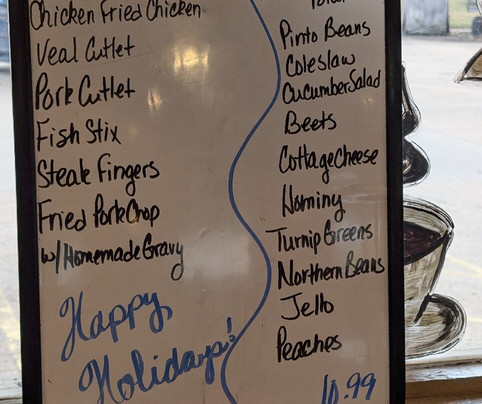 Chicken Fried Chicken
Veal Cutlet
Pork Cutlet
Fish Stix
Steak Fingers
Fried Pork Chop
w/ Homemade Gravy
Happy
Holidays!
Pinto Beans
Coleslaw
Cucumber Salad
Beets
Cottage Cheese
Hominy
Turnip Greens
Northern Beans
Jello
Peaches
10.99